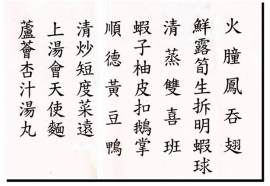 火膧鳳吞翅
鮮露筍生拆明蝦球
清蒸雙喜班
蝦子柚皮扣鵝掌
順德黃豆鴨
清炒短度菜遠
上湯會天使麵
蘆薈杏汁湯丸